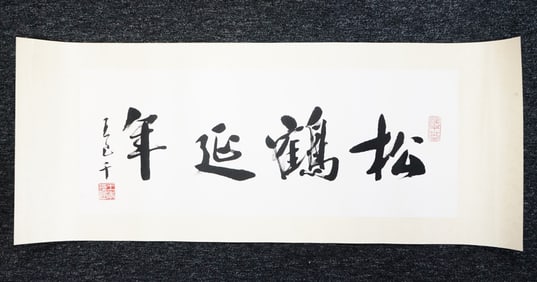 松鶴延年
王己千